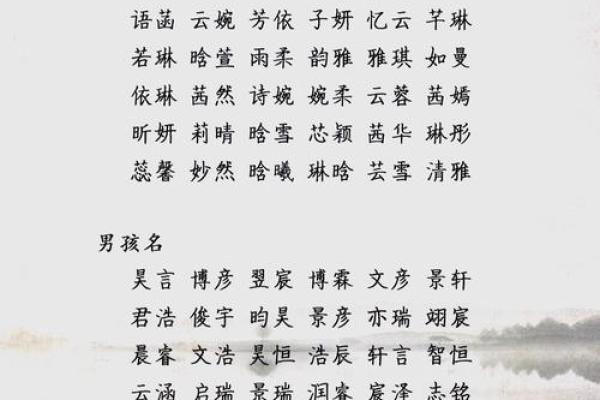 语菡 云婉 芳依 子妍 忆云 芊琳
若琳 晗萱 雨柔 韵雅 雅琪 如曼
依琳 茜然 诗婉 婉柔 云蓉 茜嫣
昕妍 莉晴 晗雪 芯颖 茜华 琳彤
蕊馨 妙然 晗曦 琳晗 芸雪 清雅
男孩名
昊言 博彦 翌宸 博霖 文彦 景轩
君浩 俊宇 昀昊 景彦 亦瑞 翊宸
晨睿 文浩 昊恒 浩辰 轩言 智恒
云涵 启瑞 景瑞 润睿 宸泽 志铭